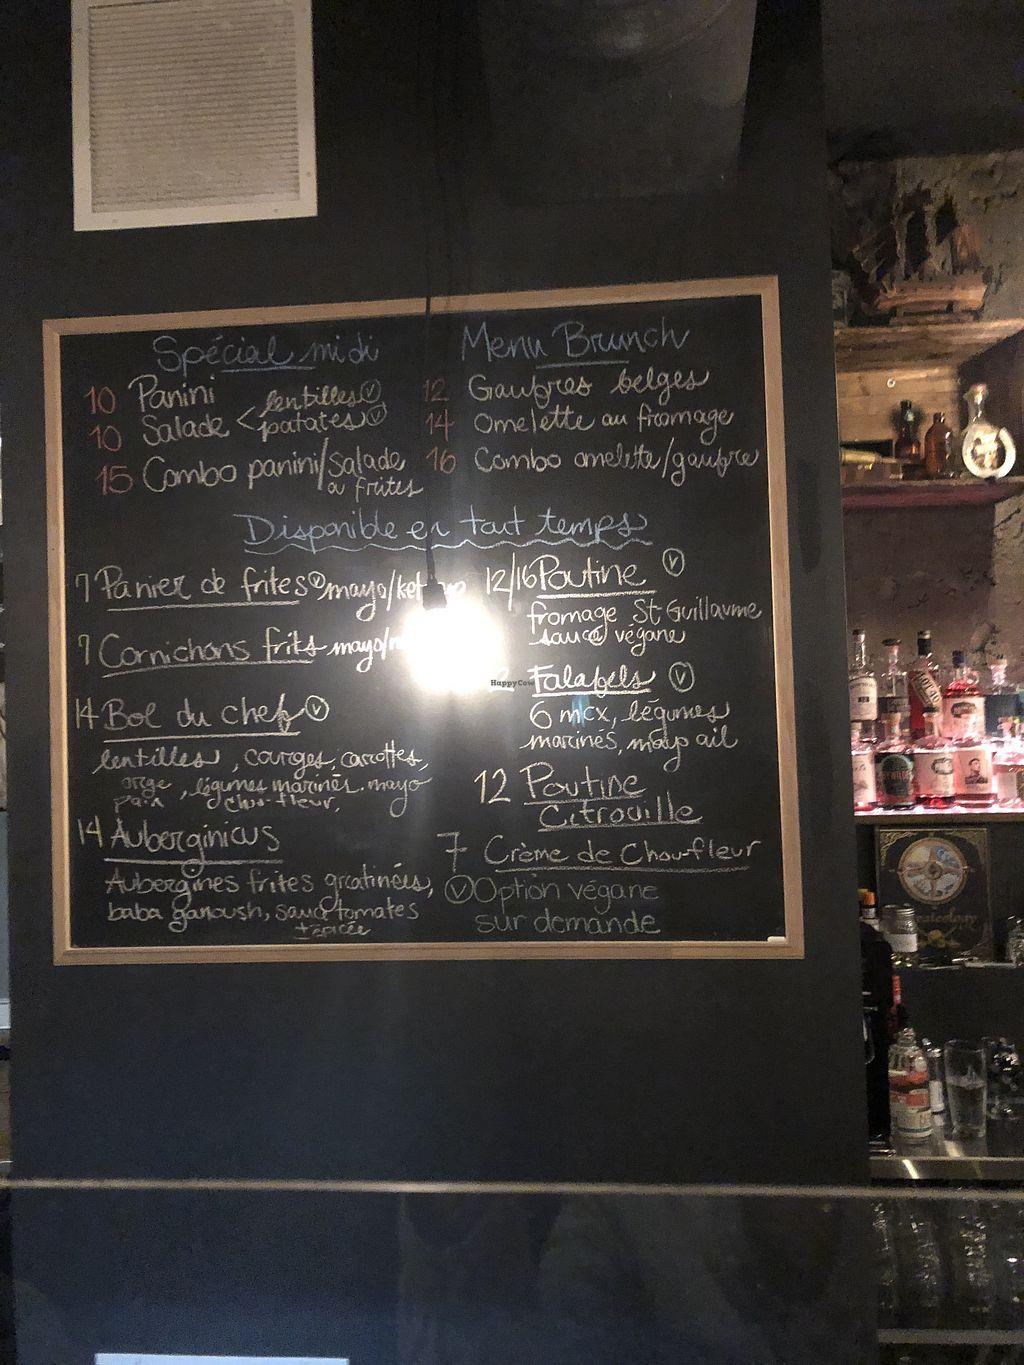 Spécial midi
10 Panini
10 Salade < lentilles Ⓥ
patates Ⓥ
15 Combo panini/salade
ou frites
Menu Brunch
12 Gaufres belges
14 Omelette au fromage
16 Combo omelette/gaufre
Disponible en tout temps
7 Panier de frites Ⓥ mayo/
7 Cornichons frits mayo/
14 Bol du chef Ⓥ
lentilles, courges, carottes,
orge, légumes marinés, mayo
pain chou-fleur,
14 Auberginicus
Aubergines frites gratinées,
baba ganoush, sauce tomates
+épicée
12/16 Poutine Ⓥ
fromage St-Guillaume
sauce végane
Falafels Ⓥ
6 mcx, légumes
marinés, mayo ail
12 Poutine
Citrouille
7 Crème de Chou-fleur
Ⓥ Option végane
sur demande
HappyCow